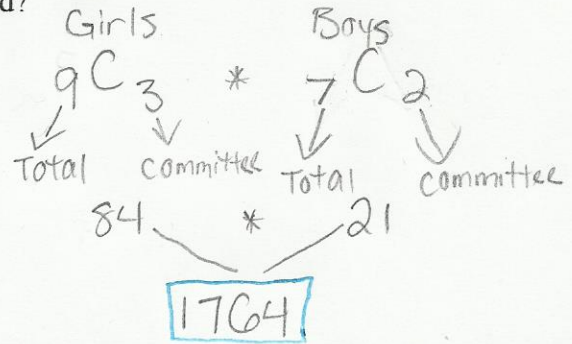 d?
Girls Boys
9C3 * 7C2
Total committee Total committee
84 * 21
1764